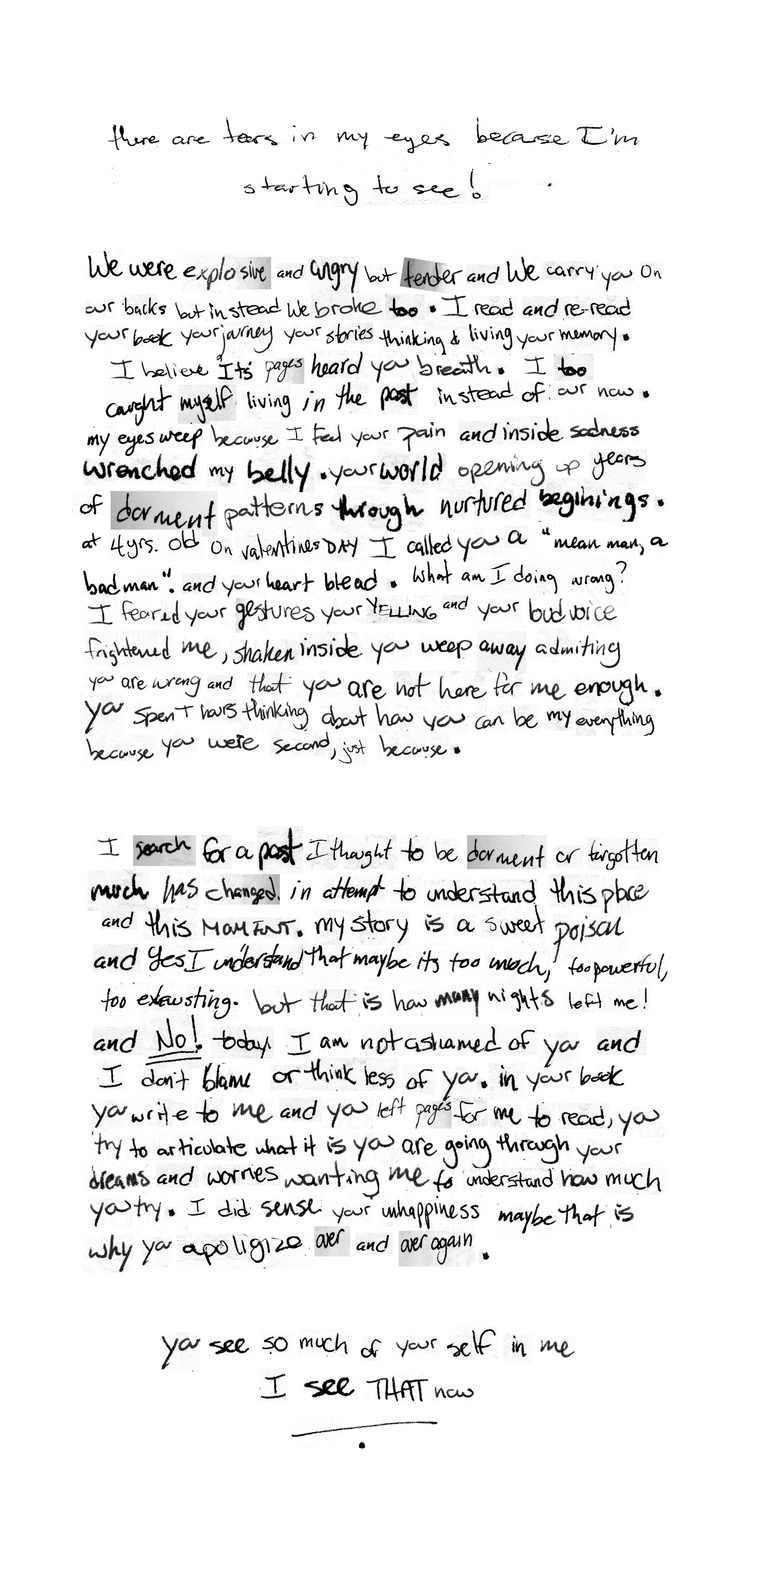 there are tears in my eyes because I'm
starting to see!
We were explosive and angry but tender and We carry you On
our backs but instead We broke too. I read and re-read
your book your journey your stories thinking & living your memory.
I believe It's pages heard you breath. I too
caught myself living in the past instead of our now.
my eyes weep because I feel your pain and inside sadness
wrenched my belly. your world opening up years
of dorment patterns through nurtured beginings.
at 4yrs. old On valentines DAY I called you a "mean man, a
bad man". and your heart blead. What am I doing wrong?
I feared your gestures your YELLING and your loud voice
frightened me, shaken inside you weep away admiting
you are wrong and that you are not here for me enough.
you spent hours thinking about how you can be my everything
because you were second, just because.
I search for a past I thought to be dorment or forgotten
much has changed. in attempt to understand this place
and this MOMENT. my story is a sweet poison
and Yes, I understand that maybe its too much, too powerful,
too exausting. but that is how many nights left me!
and No! today I am not ashamed of you and
I don't blame or think less of you. in your book
you write to me and you left pages for me to read, you
try to articulate what it is you are going through your
dreams and worries wanting me to understand how much
you try. I did sense your unhappiness maybe that is
why you apoligize over and over again.
you see so much of your self in me
I see THAT now